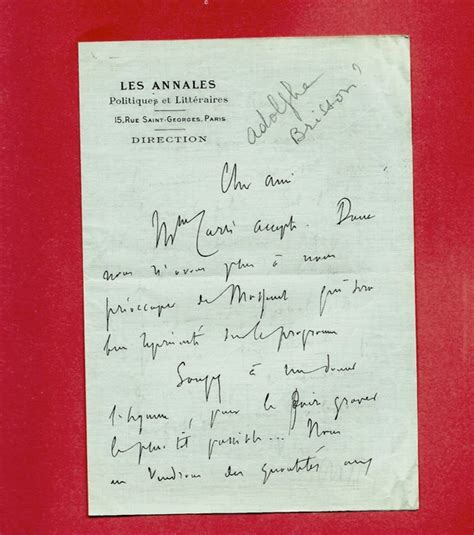 LES ANNALES
Politiques et Littéraires
15, Rue Saint-Georges, Paris
DIRECTION
Adolphe
Brisson?
Cher ami
Mme Carré accepte. Donc
nous n'avons plus à nous
préoccuper de Massenet qui sera
bien représenté sur le programme
Songez à me donner
& pour le faire graver
le plus tôt possible... Nous
en vendrons des quantités aux